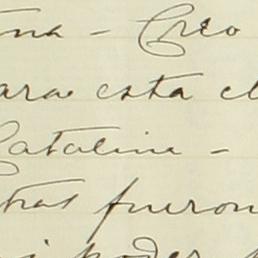 na - Creo
ara esta el
Catalina -
tras fueron
i poder